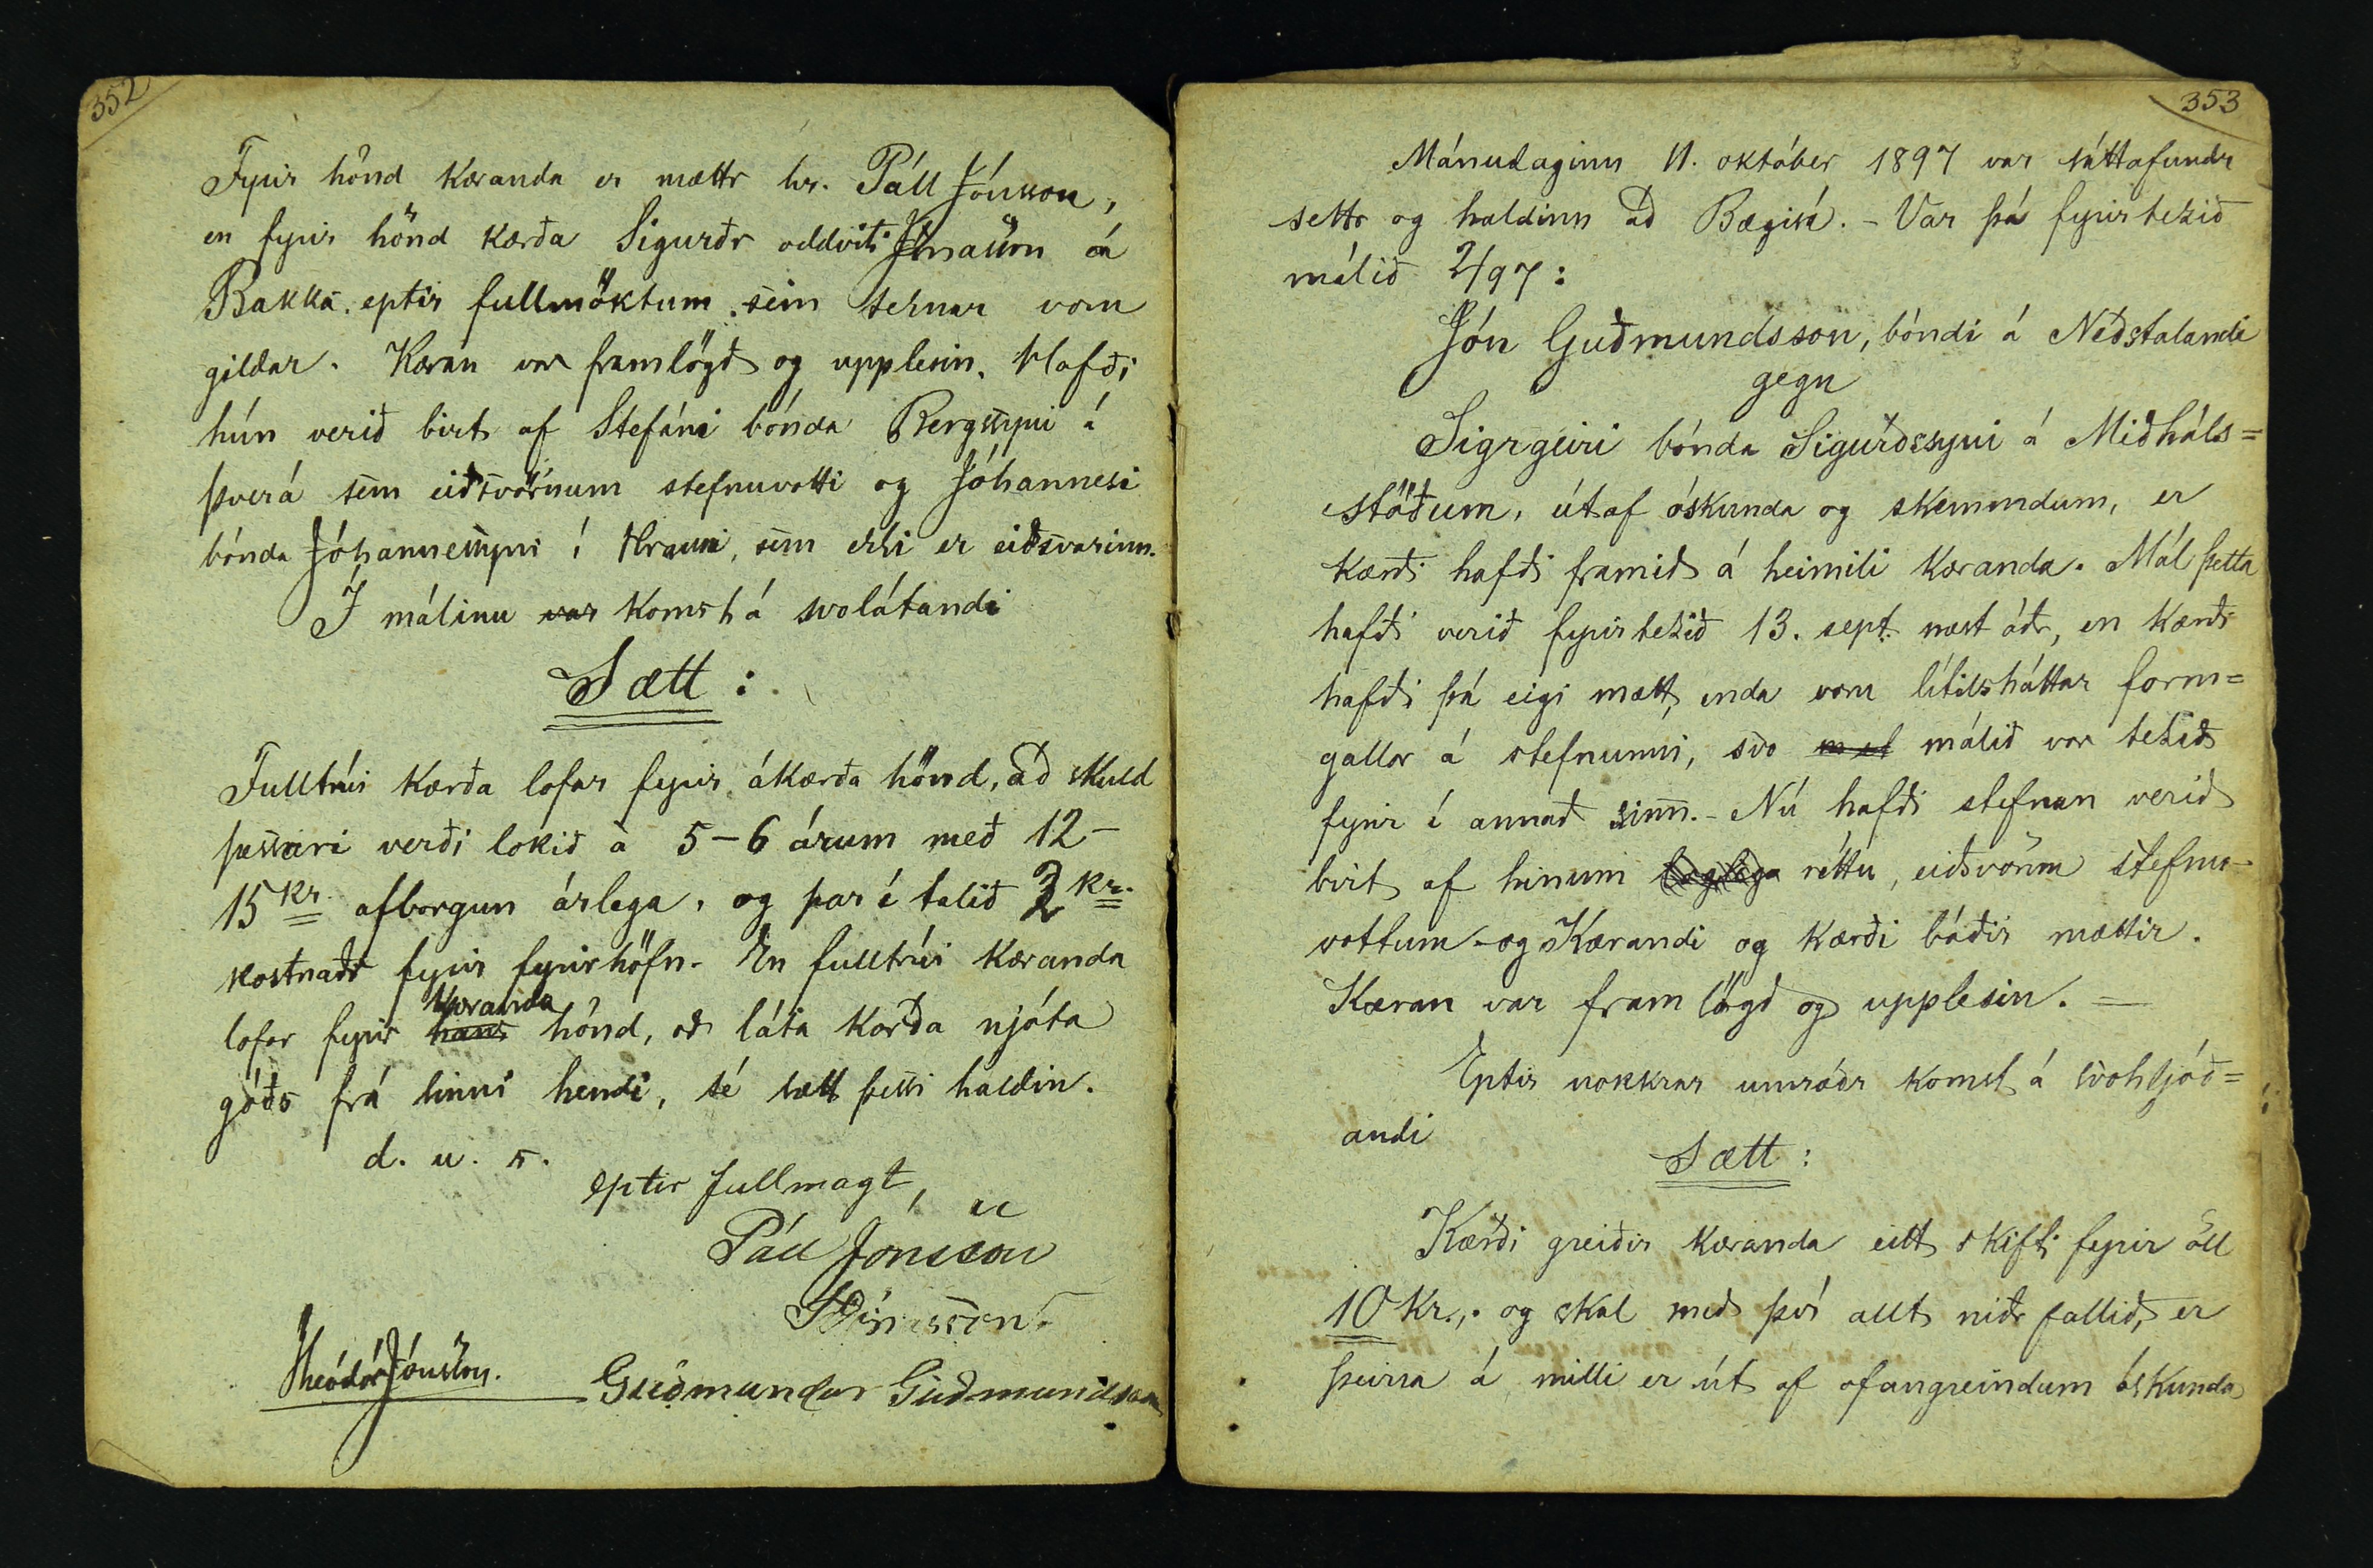 352
Fyrir hönd kæranda er mættr hr. Páll Jónsson,
en fyrir hönd kærða Sigurðr oddviti Jónasson á
Bakka eptir fullmöktum, sem teknar voru
gildar. Kæran var framlögð og upplesin. Hafði
hún verið birt af Stefáni bónda Bergssyni á
Þverá sem eiðsvörnum stefnuvotti og Jóhannesi
bónda Jóhannessyni í Hrauni, sem ekki er eiðsvarinn.
Í málinu var komst á svolátandi
Sætt:
Fulltrúi kærða lofar fyrir ákærða hönd, að skuld
þessari verði lokið á 5-6 árum með 12-
15 kr. afborgun árlega, og þar í talið 3 kr.
kostnaðr fyrir fyrirhöfn. En fulltrúi kæranda
kæranda
lofar fyrir hans hönd, að láta kærða njóta
góðs frá hinni hendi, sé sætt þessi haldin.
d. u. s.
eptir fullmagt,
Páll Jónsson
SJónasson.
Theódór Jónsson. Guðmundur Guðmundsson
353
Mánudaginn 11. október 1897 var sáttafundr
settr og haldinn að Bægisá. - Var þá fyrirtekið
málið 2/97:
Jón Guðmundsson, bóndi á Neðstalandi
gegn
Sigrgeiri bónda Sigurðssyni á Miðháls=
stöðum, útaf óskunda og skemmdum, er
kærði hafði framið á heimili kæranda. Mál þetta
hafði verið fyrirtekið 13. sept. næst áðr, en kærðr
hafði þá eigi mætt, enda voru lítilsháttar form=
gallar á stefnunni, svo mál málið var tekið
fyrir í annað sinn. - Nú hafði stefnan verið
birt af hinum löglega réttu, eiðsvörnu stefnu-
vottum - og Kærandi og kærði báðir mættir.
Kæran var fram lögð og upplesin. =
Eptir nokkrar umræðr komst á svohljóð=
andi
Sætt:
Kærði greiðir kæranda eitt skifti fyrir öll
10 kr., og skal með því allt niðr fallið, er
þeirra á milli er út af ofangreindum óskunda